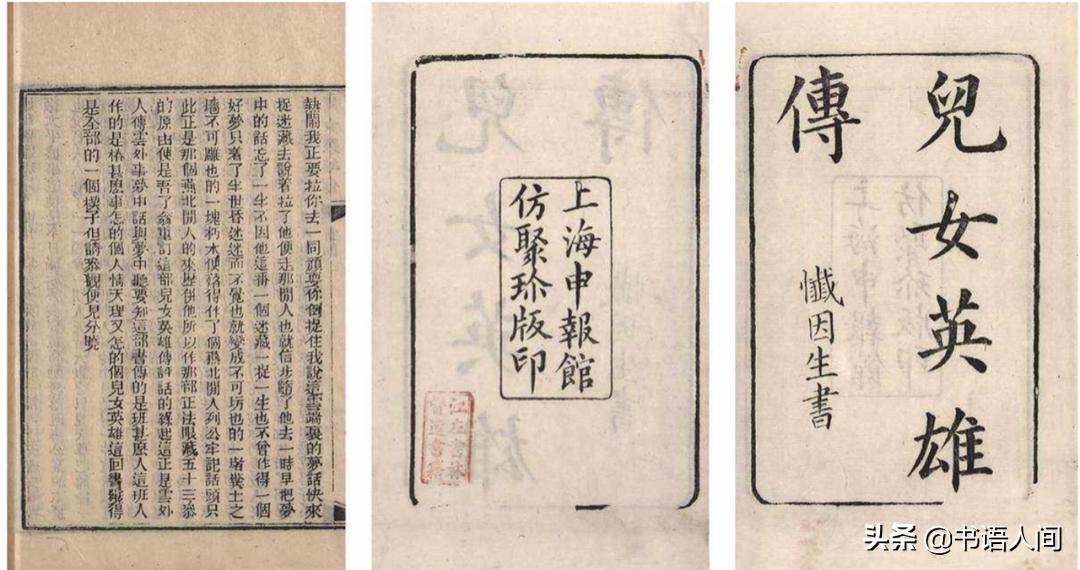 兒女英雄
傳
懺因生書
上海申報館
仿聚珍版印
江左書林
熱鬧我正要拉你去一同頑耍你倒捉住我說這雲端裏的夢話快來
捉迷藏去說着拉了他便走那閒人也就信步隨了他去一時早把夢
中的話忘了一半不因他這番一個迷藏一捉一生也不曾作得一個
好夢只着了半世昏迷迷而不覺也就變成不可圬也的一堵糞土之
墻不可雕也的一塊朽木便落得作了個燕北閒人列公牢記話頭只
此正是那個燕北閒人的來歷併他所以作那部正法眼藏五十三參
的原由便是吾了翁重訂這部兒女英雄傳評話的緣起這正是雲外
人傳雲外事夢中話與夢中聽要知這部書傳的是班甚麼人這班人
作的是樁甚麼事怎的個人情天理又怎的個兒女英雄這回書纔得
是全部的一個楔子但請參觀便見分曉
头条 @书语人间